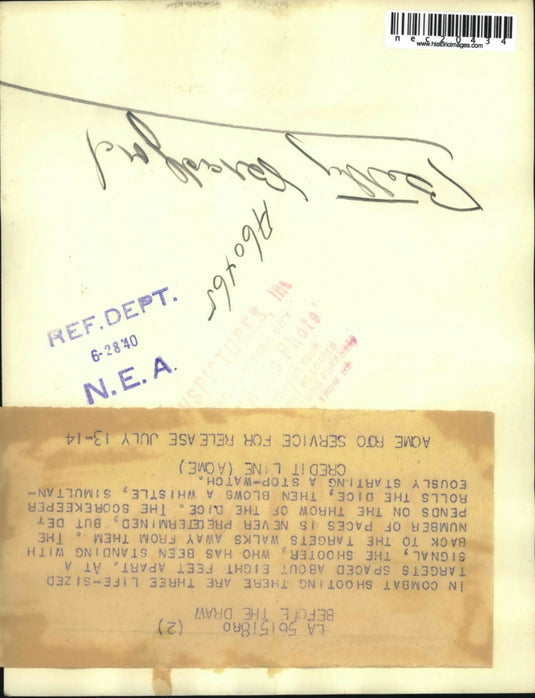 nec20434
www.historicimages.com
Betty
A60465
REF. DEPT.
6-28'40
N.E.A.
NEWSPICTURES, Inc
Photo
LA 561518RO (2)
BEFORE THE DRAW
IN COMBAT SHOOTING THERE ARE THREE LIFE-SIZED
TARGETS SPACED ABOUT EIGHT FEET APART. AT A
SIGNAL, THE SHOOTER, WHO HAS BEEN STANDING WITH
BACK TO THE TARGETS WALKS AWAY FROM THEM. THE
NUMBER OF PACES IS NEVER PREDETERMINED, BUT DE-
PENDS ON THE THROW OF THE DICE. THE SCOREKEEPER
ROLLS THE DICE, THEN BLOWS A WHISTLE, SIMULTAN-
EOUSLY STARTING A STOP-WATCH.
CREDIT LINE (ACME)
ACME ROTO SERVICE FOR RELEASE JULY 13-14